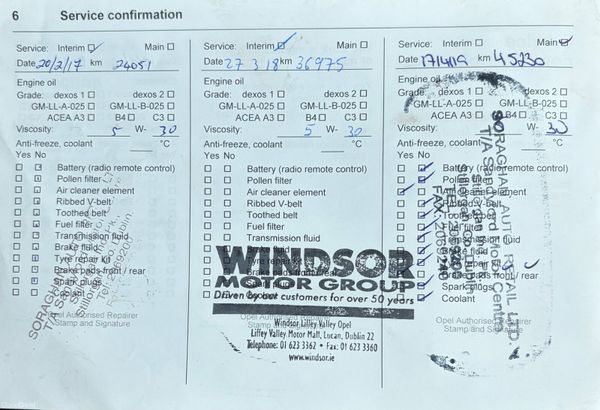 6 Service confirmation
Service: Interim Main
Date 20/2/17 km 24051
Engine oil
Grade: dexos 1 dexos 2
GM-LL-A-025 GM-LL-B-025
ACEA A3 B4 C3
Viscosity: 5 W- 30
Anti-freeze, coolant °C
Yes No
Battery (radio remote control)
Pollen filter
Air cleaner element
Ribbed V-belt
Toothed belt
Fuel filter
Transmission fluid
Brake fluid
Tyre repair kit
Brake pads front / rear
Spark plugs
Coolant
Opel Authorised Repairer
Stamp and Signature
Service: Interim Main
Date 27 3 18 km 36975
Engine oil
Grade: dexos 1 dexos 2
GM-LL-A-025 GM-LL-B-025
ACEA A3 B4 C3
Viscosity: 5 W- 30
Anti-freeze, coolant °C
Yes No
Battery (radio remote control)
Pollen filter
Air cleaner element
Ribbed V-belt
Toothed belt
Fuel filter
Transmission fluid
Brake fluid
Tyre repair kit
Brake pads front / rear
Spark plugs
Coolant
WINDSOR
MOTOR GROUP
Driven by our customers for over 50 years
Windsor Liffey Valley Opel
Liffey Valley Motor Mall, Lucan, Dublin 22
Telephone: 01 623 3362 • Fax: 01 623 3360
www.windsor.ie
Opel Authorised Repairer
Stamp and Signature
Service: Interim Main
Date 17/4/19 km 45230
Engine oil
Grade: dexos 1 dexos 2
GM-LL-A-025 GM-LL-B-025
ACEA A3 B4 C3
Viscosity: W- 30
Anti-freeze, coolant °C
Yes No
Battery (radio remote control)
Pollen filter
Air cleaner element
Ribbed V-belt
Toothed belt
Fuel filter
Transmission fluid
Brake fluid
Tyre repair kit
Brake pads front / rear
Spark plugs
Coolant
SORAGHAN AUTO RETAIL LTD.
T/A Sandyford Motor Centre
Opel Authorised Repairer
Stamp and Signature